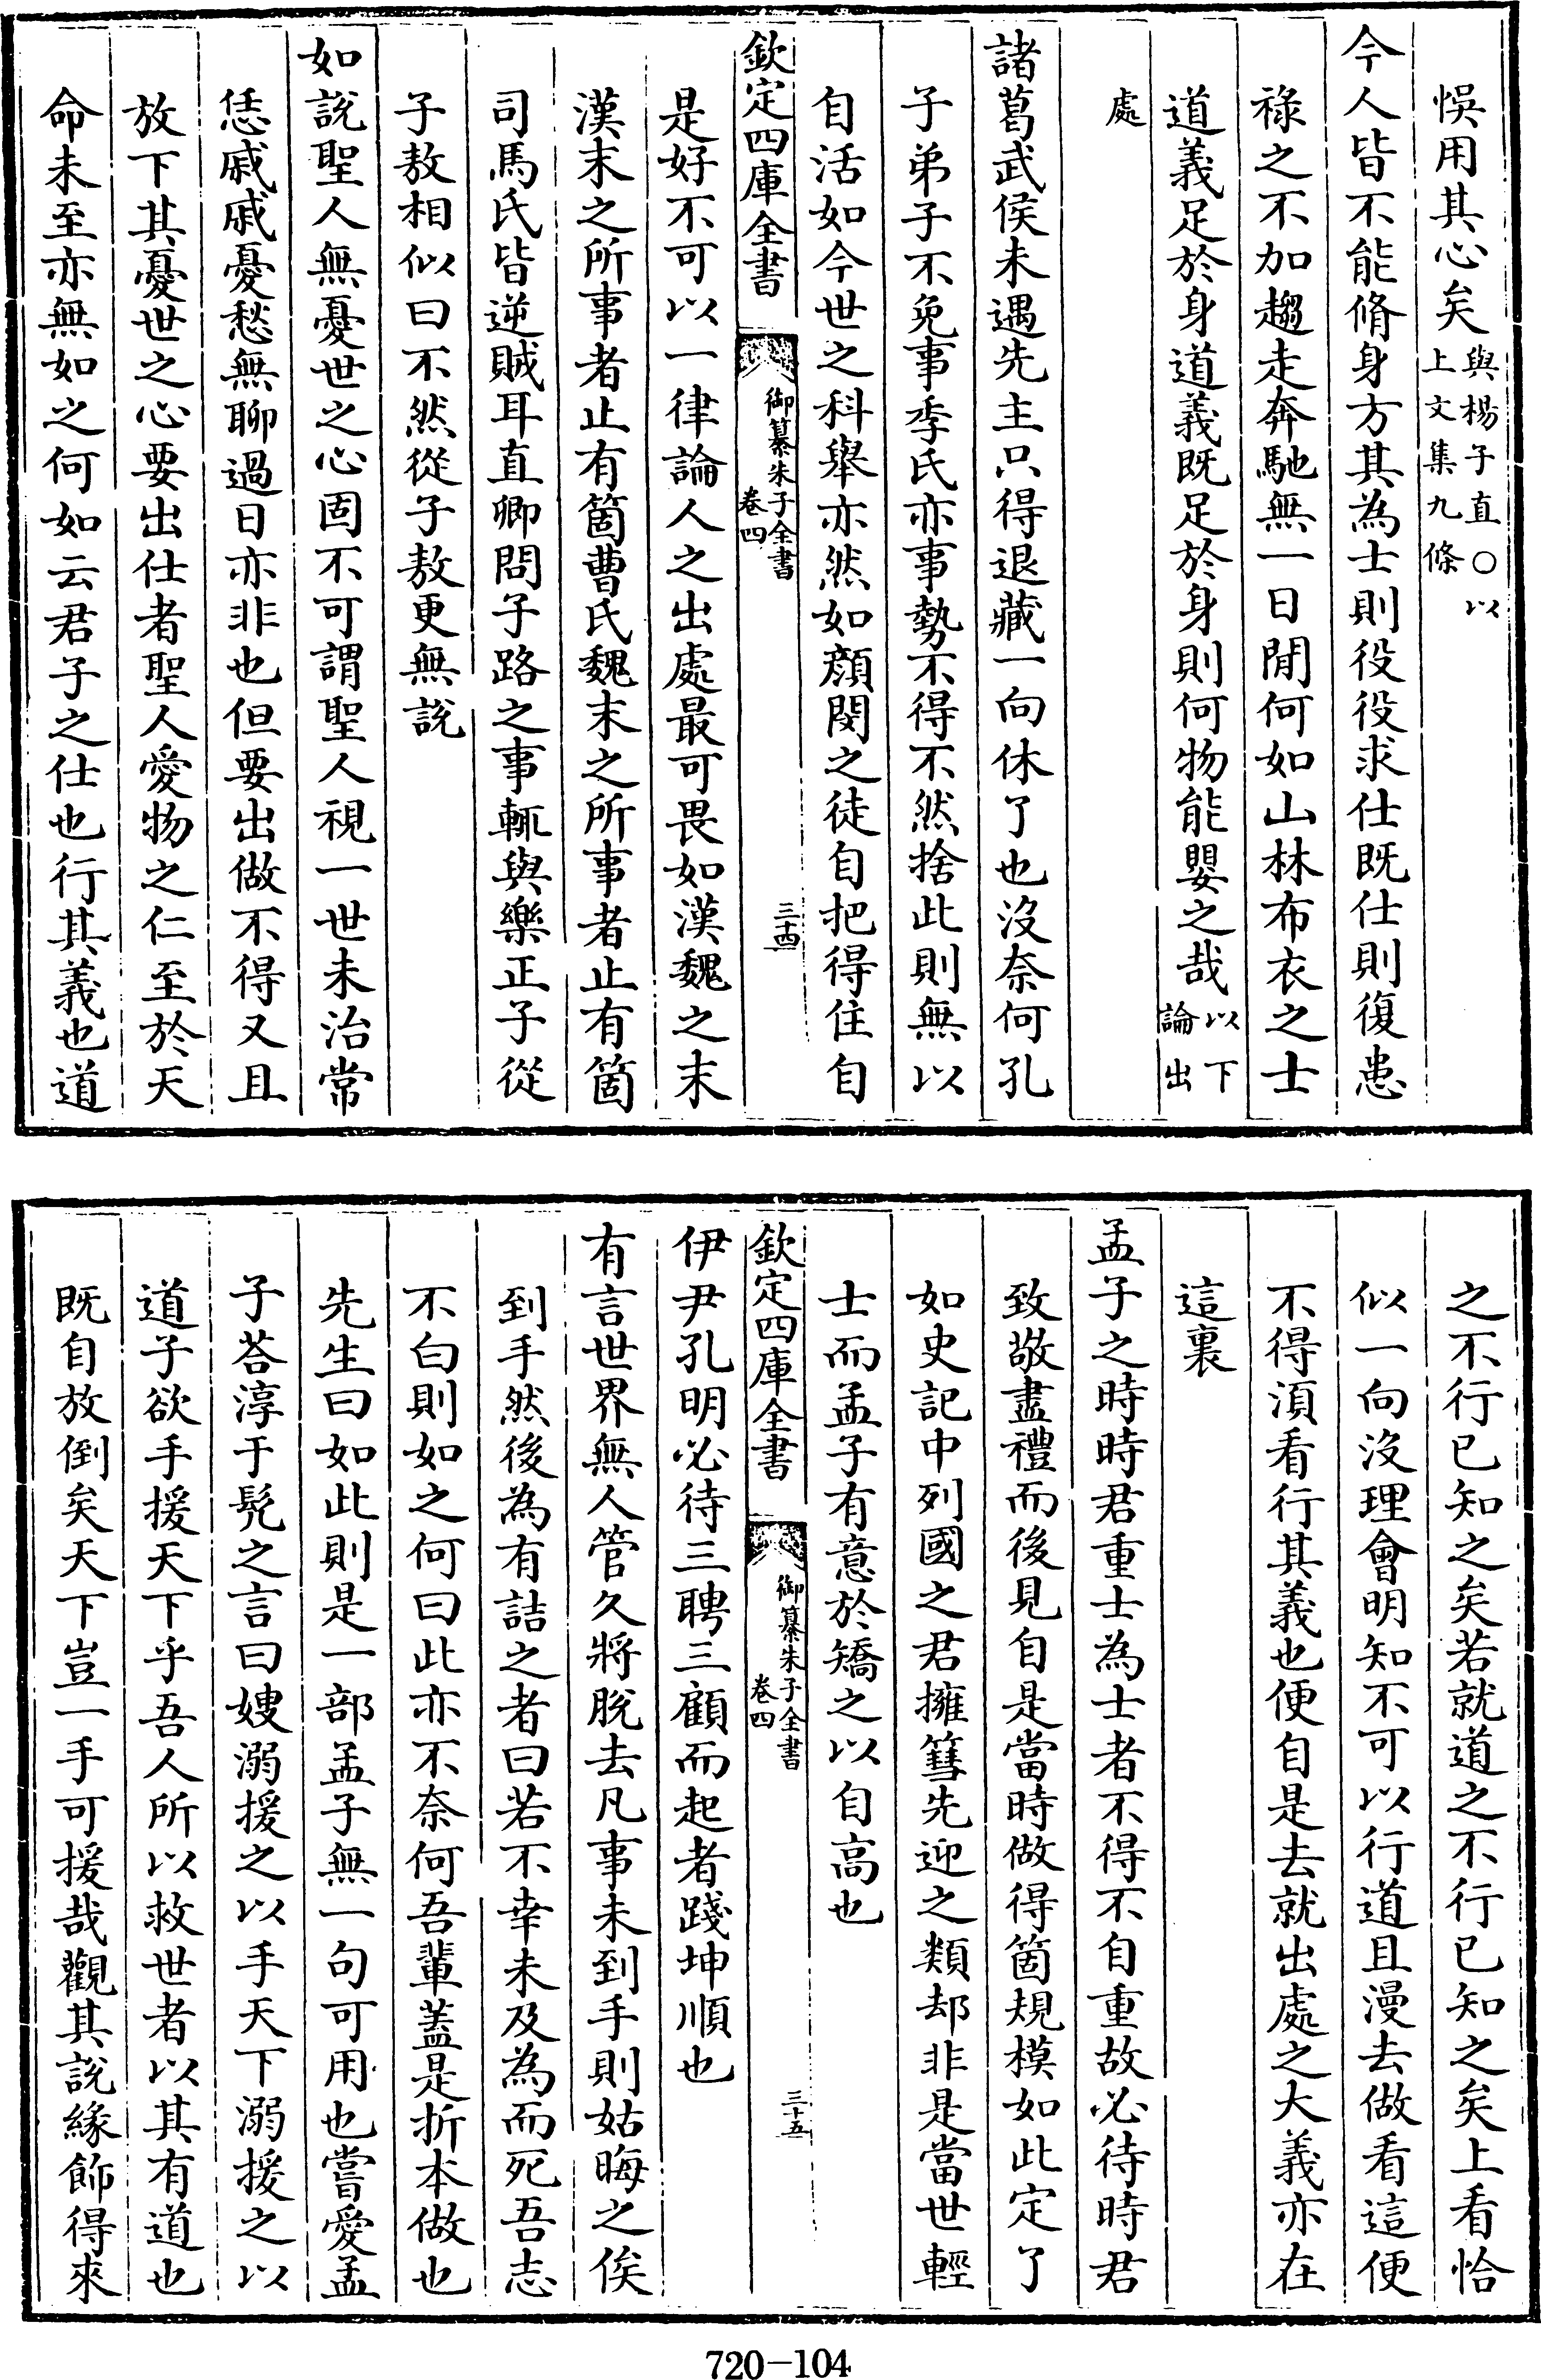 悞用其心矣與楊子直〇以
上文集九條
今人皆不能脩身方其為士則役役求仕既仕則復患
祿之不加趨走奔馳無一日閒何如山林布衣之士
道義足於身道義既足於身則何物能嬰之哉以下
論出
處
諸葛武侯未遇先主只得退藏一向休了也沒奈何孔
子弟子不免事季氏亦事勢不得不然捨此則無以
自活如今世之科舉亦然如顏閔之徒自把得住自
欽定四庫全書
御纂朱子全書
卷四
三十四
是好不可以一律論人之出處最可畏如漢魏之末
漢末之所事者止有箇曹氏魏末之所事者止有箇
司馬氏皆逆賊耳直卿問子路之事輒與樂正子從
子敖相似曰不然從子敖更無說
如說聖人無憂世之心固不可謂聖人視一世未治常
恁戚戚憂愁無聊過日亦非也但要出做不得又且
放下其憂世之心要出仕者聖人愛物之仁至於天
命未至亦無如之何如云君子之仕也行其義也道
之不行已知之矣若就道之不行已知之矣上看恰
似一向沒理會明知不可以行道且漫去做看這便
不得湏看行其義也便自是去就出處之大義亦在
這裏
孟子之時時君重士為士者不得不自重故必待時君
致敬盡禮而後見自是當時做得箇規模如此定了
如史記中列國之君擁篲先迎之類却非是當世輕
士而孟子有意於矯之以自高也
欽定四庫全書
御纂朱子全書
卷四
三十五
伊尹孔明必待三聘三顧而起者踐坤順也
有言世界無人管久將脫去凡事未到手則姑晦之俟
到手然後為有詰之者曰若不幸未及為而死吾志
不白則如之何曰此亦不奈何吾輩蓋是折本做也
先生曰如此則是一部孟子無一句可用也嘗愛孟
子荅淳于髡之言曰嫂溺援之以手天下溺援之以
道子欲手援天下乎吾人所以救世者以其有道也
既自放倒矣天下豈一手可援哉觀其說緣飾得來
720-104